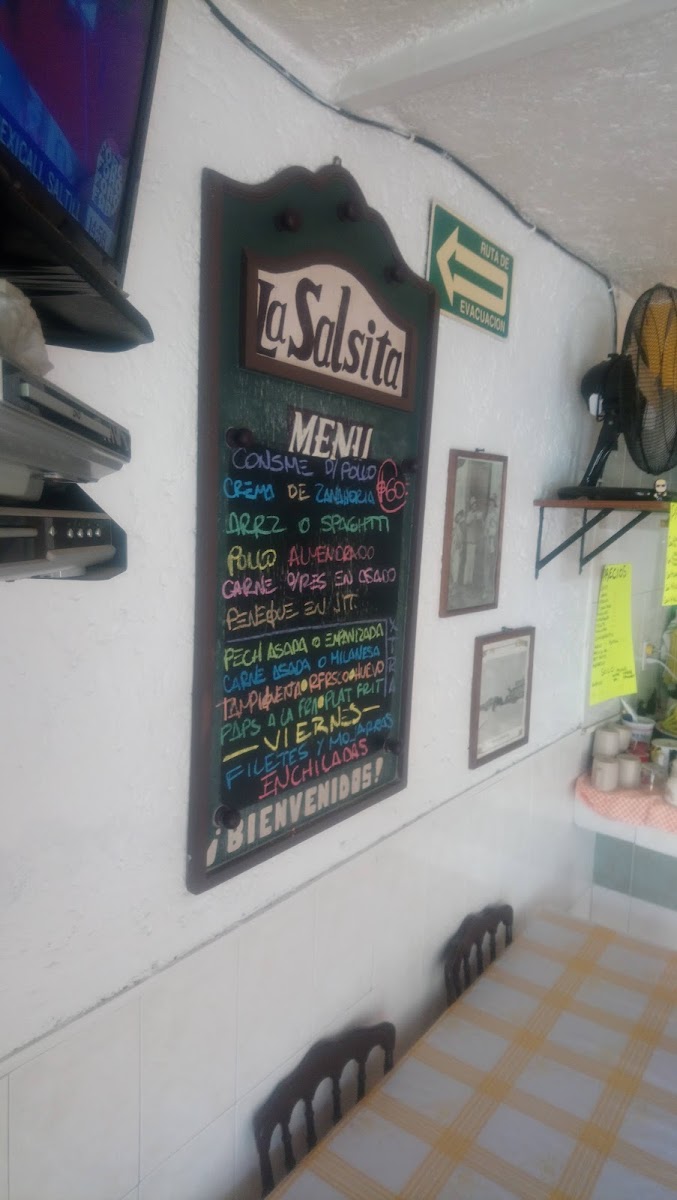 EXICALI, SALTIL
RUTA DE
EVACUACION
La Salsita
MENU
CONSME D/ POLLO
CREMA DE ZANAHORIA $60
ARRZ O SPAGHTTI
POLLO ALMENDRADO
CARNE D/RES EN ASADO
PENEQUE EN JIT.
PECH ASADA O EMPANIZADA
CARNE ASADA O MILANESA
TAMPIQUEÑTA•RFRSCO•HUEVO
PAPS A LA FRA•PLAT FRIT
XTRA
-VIERNES-
FILETES Y MOJARRAS
ENCHILADAS
¡BIENVENIDOS!
PRECIOS